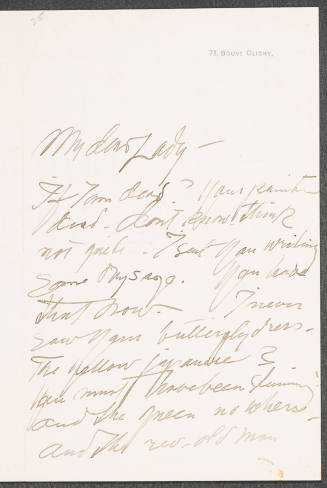 25
71. BOULD CLICHY.
My dear Lady —
If I am dead? Your painter
dead. don't know. think
not quite — I sent you writing
some days ago. You have
that now. I never
saw your butterfly dress —
The yellow Japanese?
You must have been stunning
and the Queen no where —
and the rev. old man